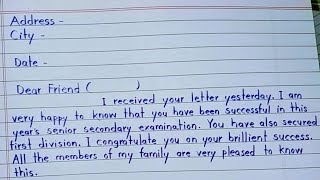 Address -
City -
Date -
Dear Friend (          )
I received your letter yesterday. I am
very happy to know that you have been successful in this
year's senior secondary examination. You have also secured
first division. I congratulate you on your brilient success.
All the members of my family are very pleased to know
this.